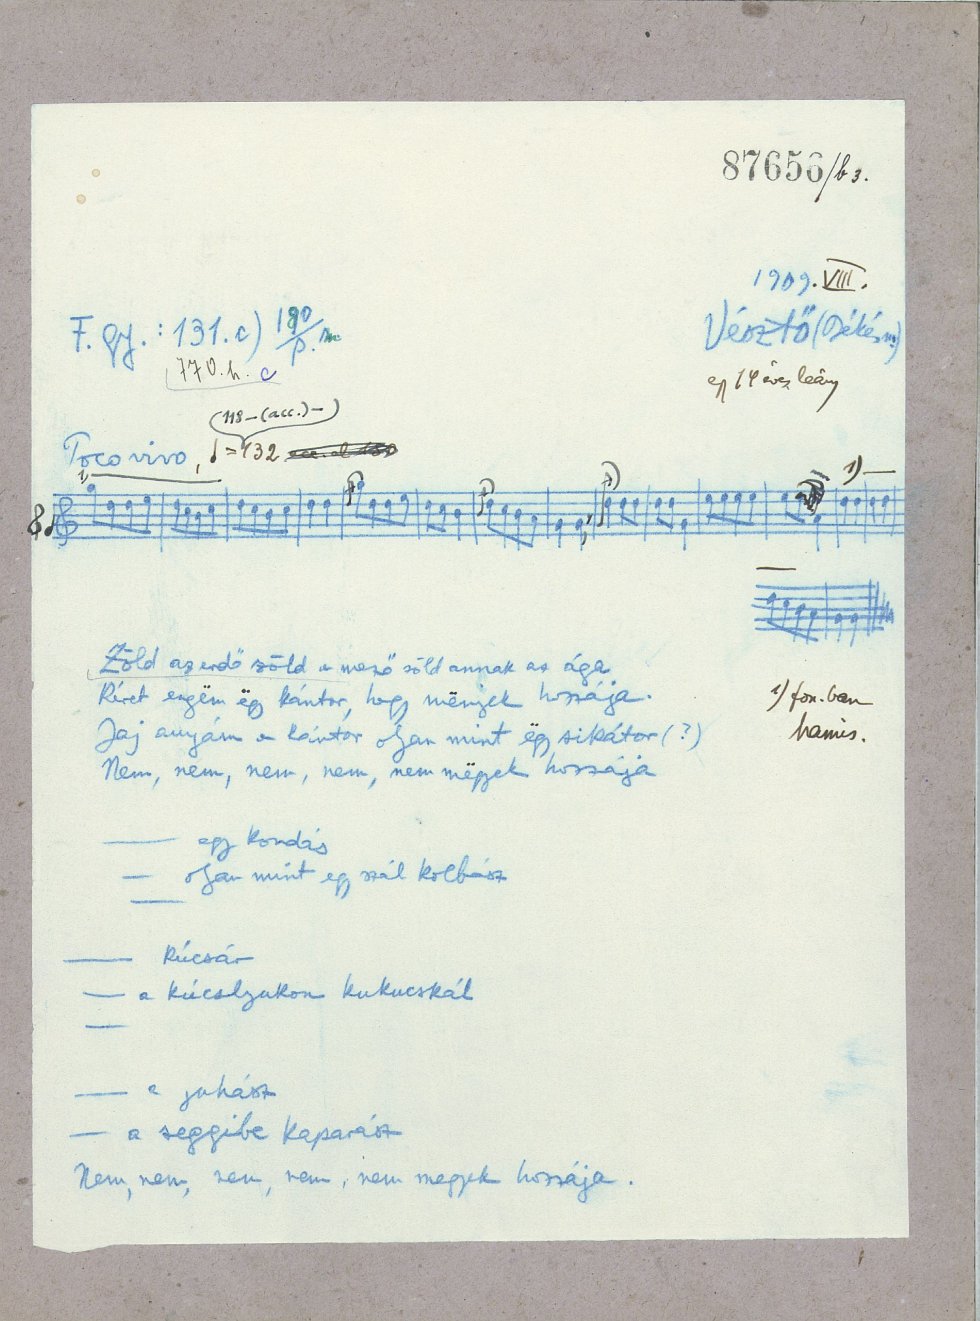 87656/b 3.
1909. VIII.
F. gy.: 131. c) 190/p.
Vésztő (Békés m.)
770. h. c
egy 14 éves leány
118 – (acc.) –
Poco vivo, ♩ = 132
1)
1)
Zöld az erdő zöld a mező zöld annak az ága
Kéret engëm ëgy kántor, hogy mënjek hozzája.
Jaj anyám a kántor ojan mint ëgy sikátor (?)
Nem, nem, nem, nem, nem mëgyek hozzája
1) fon. ban
hamis.
— egy kondás
— ojan mint egy szál kolbász
—
— kúcsár
— a kúcslyukon kukucskál
—
— a juhász
— a seggibe kaparász
Nem, nem, nem, nem, nem megyek hozzája.